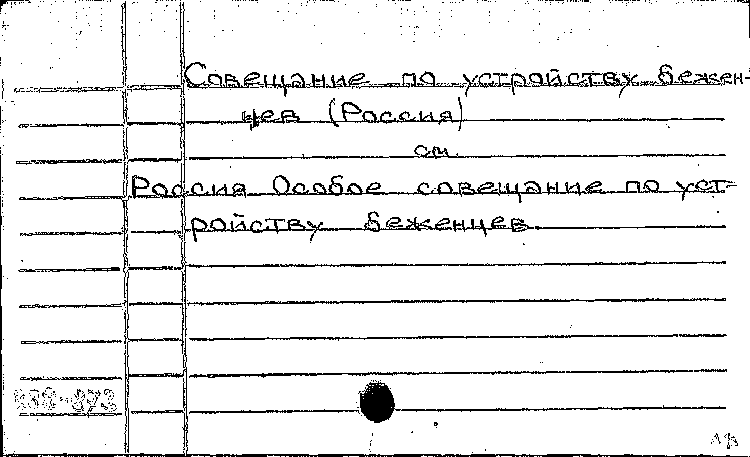 Совещание по устройству бежен-
цев (Россия)
см.
Россия. Особое совещание по уст-
ройству беженцев.